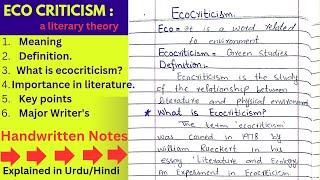 ECO CRITICISM :
a literary theory
1. Meaning
2. Definition.
3. What is ecocriticism?
4. Importance in literature.
5. Key points
6. Major Writer's
Handwritten Notes
Explained in Urdu/Hindi
EcoCriticism.
Eco = It is a word related
to environment
Ecocriticism = Green studies
Definition:
Ecocriticism is the study
of the relationship between
literature and physical environment
* What is Ecocriticism?
The term 'ecocriticism'
was coined in 1978 by
William Rueckert in his
essay 'Literature and Ecology
An Experiment in Ecocriticism